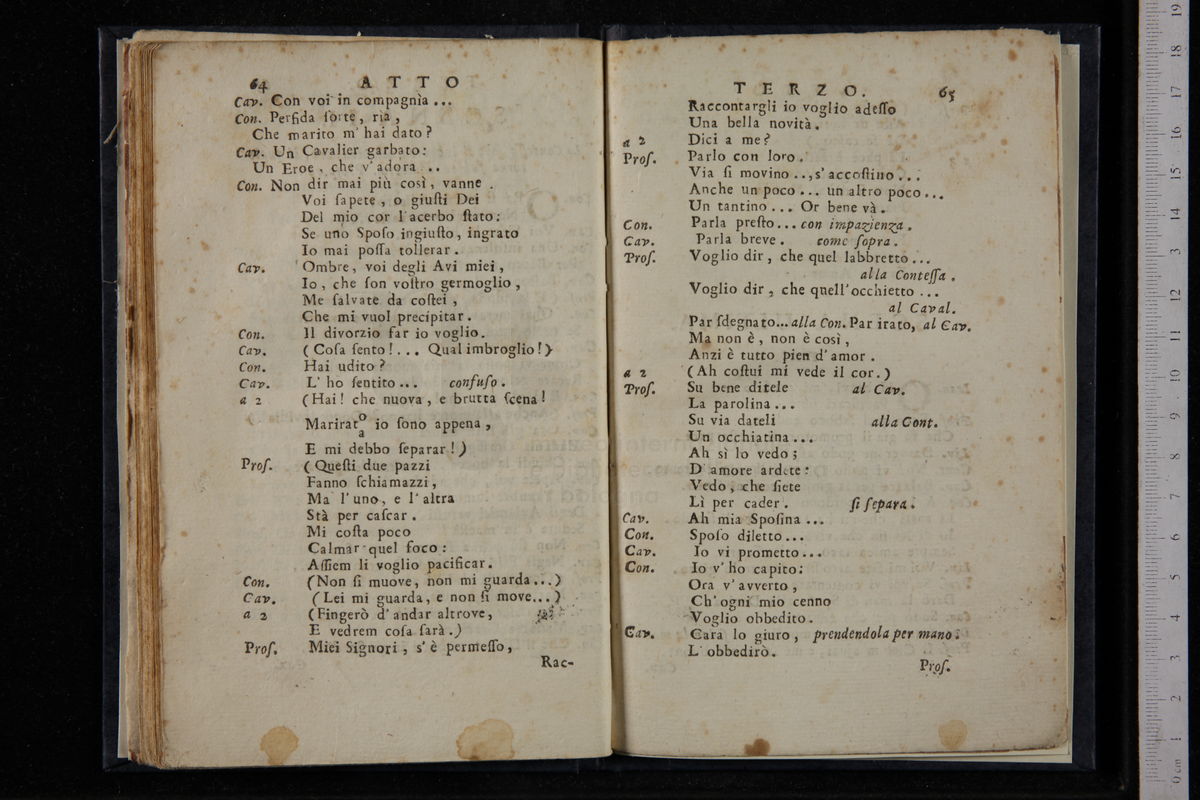 64 ATTO
Cav. Con voi in compagnìa ...
Con. Perfida ſorte, ria,
Che marito m' hai dato?
Cav. Un Cavalier garbato:
Un Eroe, che v' adora ...
Con. Non dir mai più così, vanne.
Voi ſapete, o giuſti Dei
Del mio cor l' acerbo ſtato:
Se uno Spoſo ingiuſto, ingrato
Io mai poſſa tollerar.
Cav. Ombre, voi degli Avi miei,
Io, che ſon voſtro germoglio,
Me ſalvate da coſtei,
Che mi vuol precipitar.
Con. Il divorzio far io voglio.
Cav. (Coſa ſento!... Qual imbroglio!)
Con. Hai udito?
Cav. L' ho ſentito ... confuſo.
a 2 (Hai! che nuova, e brutta ſcena!
Maritat o/a io ſono appena,
E mi debbo ſeparar!)
Proſ. (Queſti due pazzi
Fanno ſchiamazzi,
Ma l' uno, e l' altra
Stà per caſcar.
Mi coſta poco
Calmar quel foco:
Aſſiem li voglio pacificar.
Con. (Non ſi muove, non mi guarda...)
Cav. (Lei mi guarda, e non ſi move...)
a 2 (Fingerò d' andar altrove,
E vedrem coſa ſarà.)
Proſ. Miei Signori, s' è permeſſo,
Rac-
TERZO. 65
Raccontargli io voglio adeſſo
Una bella novità.
a 2 Dici a me?
Proſ. Parlo con loro.
Via ſi movino ..., s' accoſtino ...
Anche un poco ... un altro poco ...
Un tantino ... Or bene và.
Con. Parla preſto... con impazienza.
Cav. Parla breve. come ſopra.
Proſ. Voglio dir, che quel labbretto ...
alla Conteſſa.
Voglio dir, che quell' occhietto ...
al Caval.
Par ſdegnato... alla Con. Par irato, al Cav.
Ma non è, non è così,
Anzi è tutto pien d' amor.
a 2 (Ah coſtui mi vede il cor.)
Proſ. Su bene ditele al Cav.
La parolina ...
Su via dateli alla Cont.
Un occhiatina ...
Ah sì lo vedo;
D' amore ardete:
Vedo, che ſiete
Lì per cader. ſi ſepara.
Cav. Ah mia Spoſina ...
Con. Spoſo diletto ...
Cav. Io vi prometto ...
Con. Io v' ho capito:
Ora v' avverto,
Ch' ogni mio cenno
Voglio obbedito.
Cav. Cara lo giuro, prendendola per mano.
L' obbedirò.
Proſ.